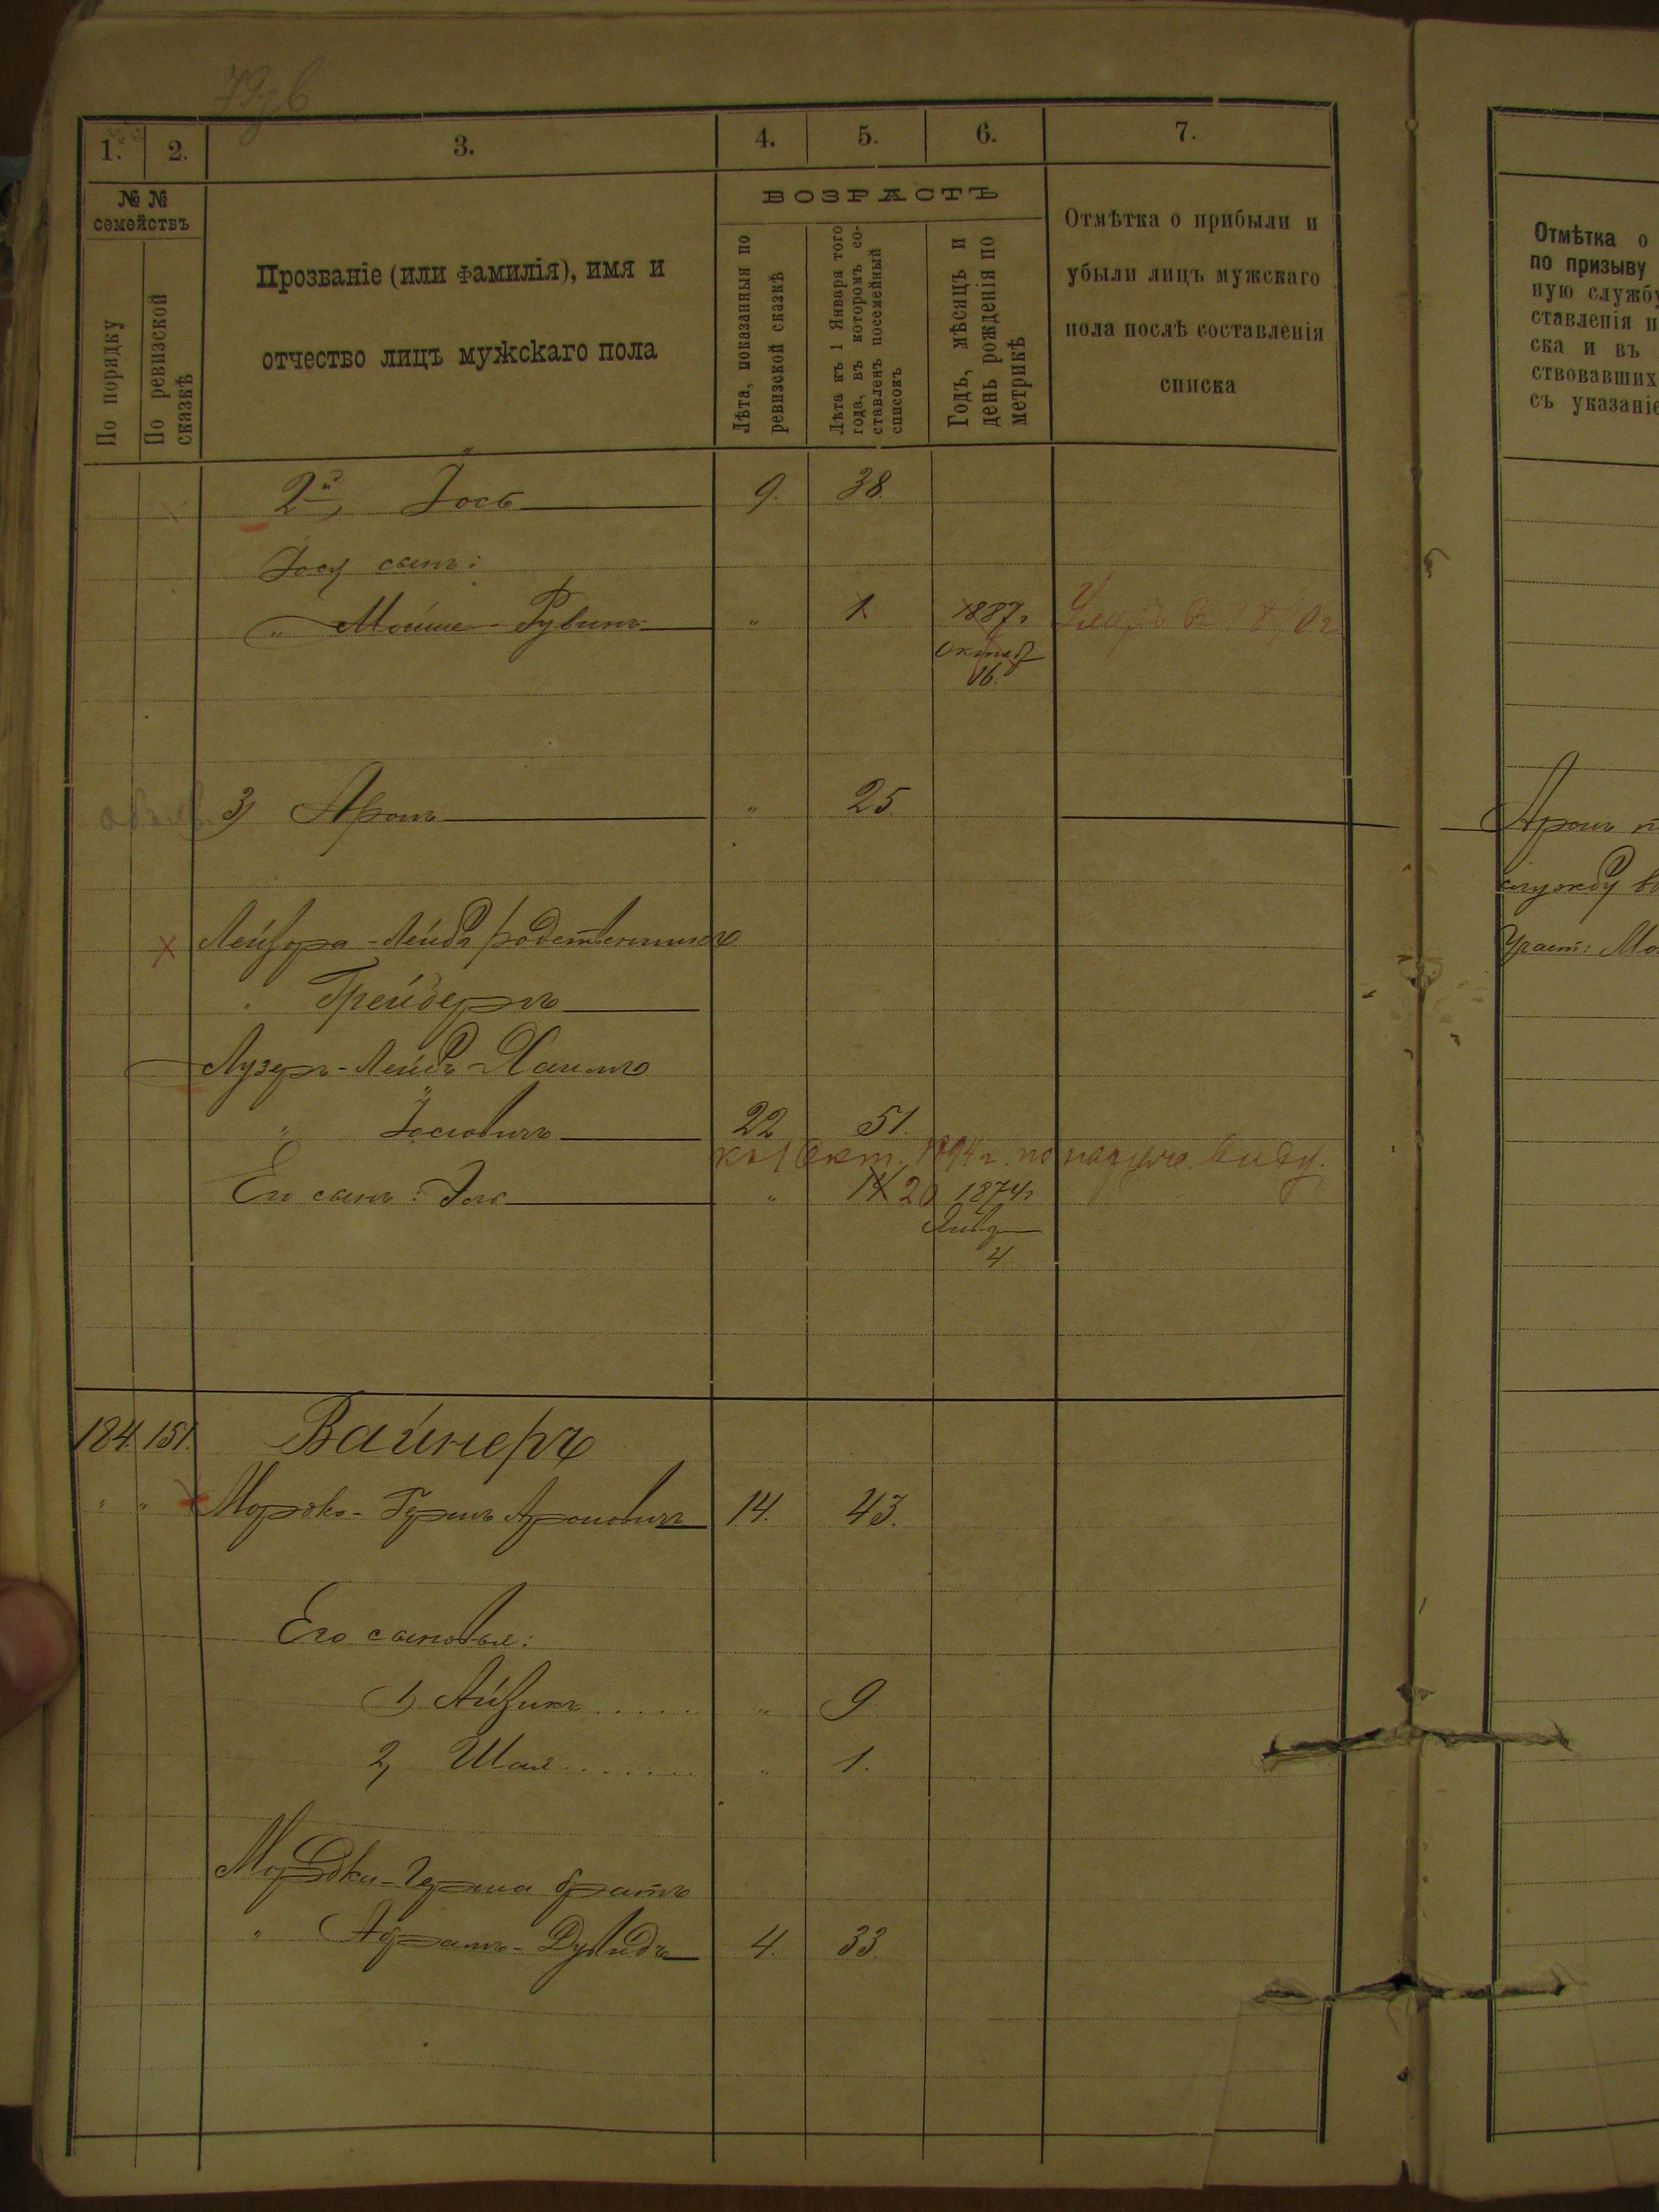 1.
2.
3.
4.
5.
6.
7.
№ №
семействъ
По порядку
По ревизской
сказкѣ
Прозваніе (или фамилія), имя и
отчество лицъ мужскаго пола
ВОЗРАСТЪ
Лѣта, показанныя по
ревизской сказкѣ
Лѣта къ 1 Января того
года, въ которомъ со-
ставленъ посемейный
списокъ
Годъ, мѣсяцъ и
день рожденія по
метрикѣ
Отмѣтка о прибыли и
убыли лицъ мужскаго
пола послѣ составленія
списка
Отмѣтка о
по призыву
ную службу
ставленія п
ска и въ
ствовавших
съ указаніе
2й, Іось 9. 38.
Іося сынъ:
" Мойше - Рувинъ " 1 1887г Умеръ въ
Октяб
16.
3) Аронъ " 25.
Аронъ
службу
Участ: Мо
Лейзора - Лейбы родственникъ
Грейберъ
Лузеръ - Лейбъ - Хаимъ
" Іосіовичъ 22 51.
къ 1 Окт. 1894 г. по наружн. виду.
Его сынъ: Іось " 14 20 1874г
Янв
4.
184. 151. Вайнеръ
" " Мордко - Гершъ Ароновичъ 14. 43.
Его сыновья:
1, Айзикъ ..... " 9
2, Шая ...... " 1.
Мордки - Герша братъ
" Абрамъ - Дувидъ 4. 33.